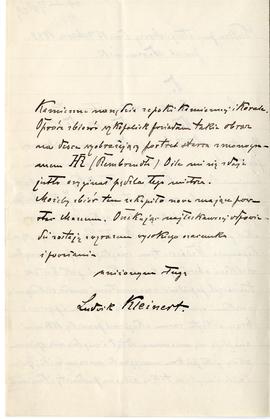 Kamienne narzędzia z epoki Kamiennej i Korale.
Oprócz zbiorów wykopalisk posiadam także obraz
na desce wyobrażający portret starca z monogra-
mem HL (Rembrandt) O ile mi się zdaje
jest oryginał pędzla tego mistrza.
zbiór ten nowo
Muzeum. Oczekując najłaskawszej odpowie-
dzi zostaję z wyrazem wysokiego szacunku
i poważania
uniżonym sługą
Ludwik Kleinert.